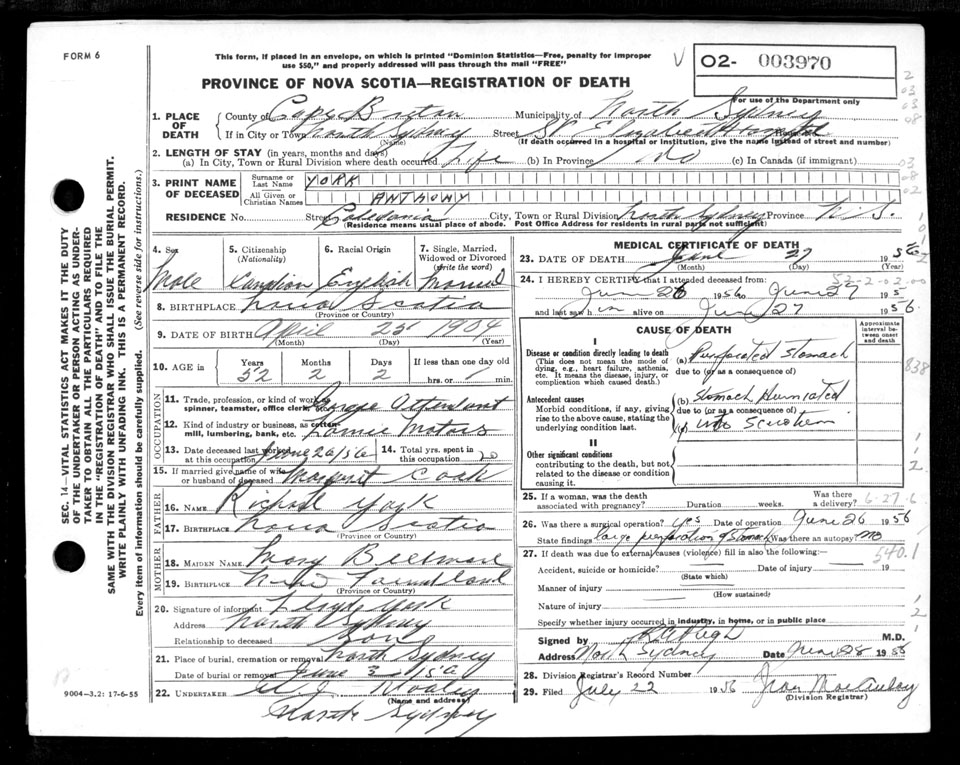 FORM 6
This form, if placed in an envelope, on which is printed "Dominion Statistics—Free, penalty for improper
use $50," and properly addressed will pass through the mail "FREE"
PROVINCE OF NOVA SCOTIA—REGISTRATION OF DEATH
V
02- 003970
For use of the Department only
1. PLACE OF DEATH
County of Cape Breton Municipality of North Sydney
If in City or Town North Sydney Street St Elizabeth Hospital
(Name) (If death occurred in a hospital or institution, give the name instead of street and number)
2. LENGTH OF STAY (in years, months and days)
(a) In City, Town or Rural Division where death occurred Life (b) In Province do (c) In Canada (if immigrant)
3. PRINT NAME OF DECEASED
Surname or Last Name YORK
All Given or Christian Names ANTHONY
RESIDENCE No. Street Caledonia City, Town or Rural Division North Sydney Province N.S.
(Residence means usual place of abode. Post Office Address for residents in rural parts not sufficient)
4. Sex 5. Citizenship (Nationality) 6. Racial Origin 7. Single, Married, Widowed or Divorced (write the word)
Male Canadian English Married
8. BIRTHPLACE Nova Scotia
(Province or Country)
9. DATE OF BIRTH April 25 1904
(Month) (Day) (Year)
10. AGE in Years Months Days If less than one day old
52 2 2 hrs. or min.
OCCUPATION
11. Trade, profession, or kind of work as spinner, teamster, office clerk, etc. Garage Attendant
12. Kind of industry or business, as cotton mill, lumbering, bank, etc. Motors
13. Date deceased last worked at this occupation June 26/56 14. Total yrs. spent in this occupation 20
15. If married give name of wife or husband of deceased Margaret
FATHER
16. NAME Richard York
17. BIRTHPLACE Nova Scotia
(Province or Country)
MOTHER
18. MAIDEN NAME Mary
19. BIRTHPLACE New Foundland
(Province or Country)
20. Signature of informant Lloyde York
Address North Sydney
Relationship to deceased Son
21. Place of burial, cremation or removal North Sydney
Date of burial or removal June 3
22. UNDERTAKER W J
(Name and address)
North Sydney
MEDICAL CERTIFICATE OF DEATH
23. DATE OF DEATH June 27 1956
(Month) (Day) (Year)
24. I HEREBY CERTIFY that I attended deceased from:
June 26 1956 to June 27 195
and last saw h im alive on June 27 1956
CAUSE OF DEATH
Approximate interval between onset and death
I
Disease or condition directly leading to death (a) Perforated Stomach
(This does not mean the mode of dying, e.g., heart failure, asthenia, etc. It means the disease, injury, or complication which caused death.)
due to (or as a consequence of)
Antecedent causes (b) Stomach Herniated
Morbid conditions, if any, giving rise to the above cause, stating the underlying condition last.
due to (or as a consequence of)
(c) into
II
Other significant conditions
contributing to the death, but not related to the disease or condition causing it.
838
25. If a woman, was the death associated with pregnancy? Duration weeks. Was there a delivery? 6-27-6
26. Was there a surgical operation? yes Date of operation June 26 1956
State findings large perforation of Stomach Was there an autopsy? no
540.1
27. If death was due to external causes (violence) fill in also the following:—
Accident, suicide or homicide? Date of injury 19
(State which)
Manner of injury
(How sustained)
Nature of injury
Specify whether injury occurred in industry, in home, or in public place
Signed by M.D.
Address North Sydney Date June 28 1956
28. Division Registrar's Record Number
29. Filed July 22 1956 Jean MacAulay
(Division Registrar)
SEC. 14—VITAL STATISTICS ACT MAKES IT THE DUTY
OF THE UNDERTAKER OR PERSON ACTING AS UNDER-
TAKER TO OBTAIN ALL THE PARTICULARS REQUIRED
IN THE "REGISTRATION OF DEATH" AND TO FILE THE
SAME WITH THE DIVISION REGISTRAR WHO SHALL ISSUE THE BURIAL PERMIT.
WRITE PLAINLY WITH UNFADING INK. THIS IS A PERMANENT RECORD.
Every item of information should be carefully supplied. (See reverse side for instructions.)
9004-3.2: 17-6-55